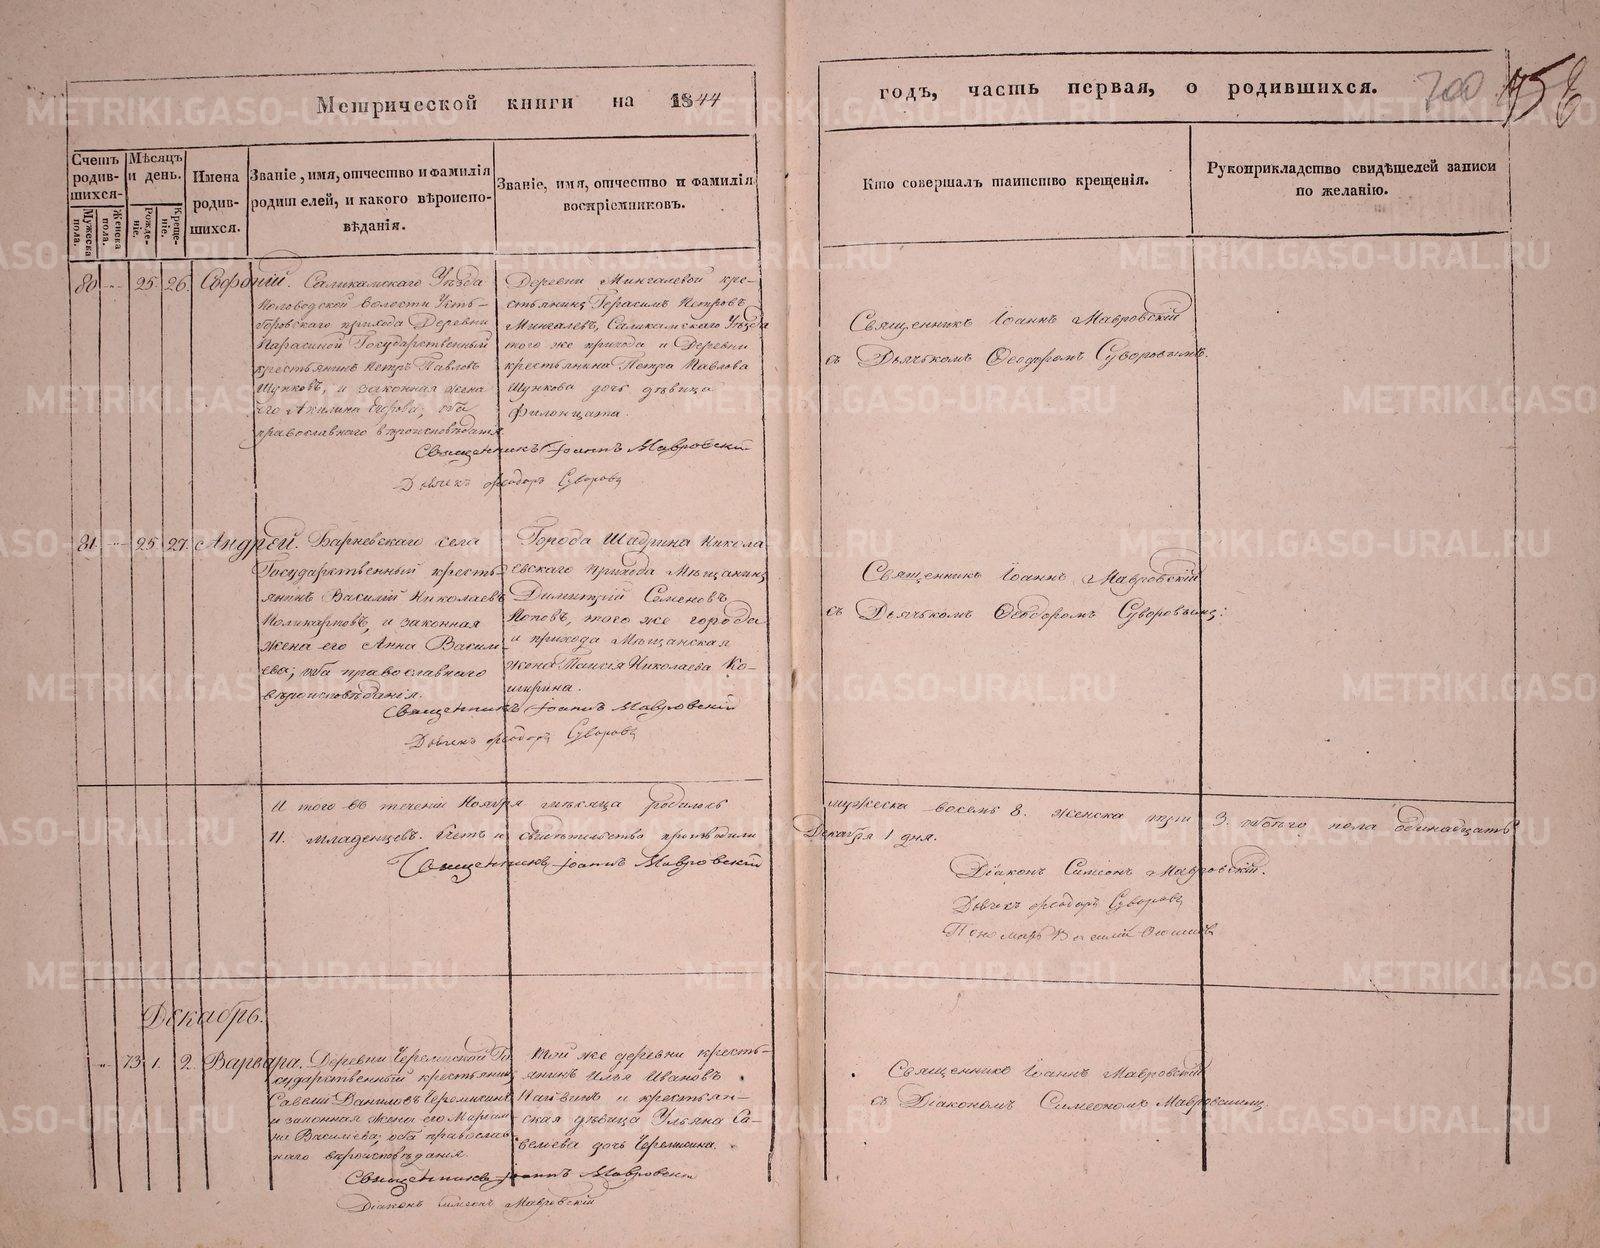 Метрической книги на 1844
годъ, часть первая, о родившихся.
700
Счетъ родившихся.
Мужеска пола.
Женска пола.
Мѣсяцъ и день.
Рожденіе.
Крещеніе.
Имена родившихся.
Званіе, имя, отчество и фамилія
родителей, и какого вѣроиспо-
вѣданія.
Званіе, имя, отчество и фамилія
воспріемниковъ.
Кто совершалъ таинство крещенія.
Рукоприкладство свидѣтелей записи
по желанію.
80 25. 26. Софроній.
Саликамскаго Уѣзда
Половодской Волости Усть-
Боровскаго прихода Деревни
Парасиной Государственный
крестьянинъ Петръ Павловъ
Шунковъ, и законная жена
его Акилина Егорова; оба
православнаго вѣроисповѣданія
Деревни Мингалевой кре-
стьянинъ Герасимъ Петровъ
Мингалевъ, Саликамскаго Уѣзда
того же прихода и Деревни
крестьянина Петра Павлова
Шункова дочь дѣвица
Филонцата.
Священникъ Іоаннъ Мавровскій
Дьячекъ Ѳеодоръ Суворовъ
Священникъ Іоаннъ Мавровскій
съ Дьячькомъ Ѳеодоромъ Суворовымъ.
81. 25. 27. Андрей.
Барневскаго села
Государственный кресть-
янинъ Василій Николаевъ
Поликарповъ, и законная
жена его Анна Василь-
ева; оба православнаго
вѣроисповѣданія.
Города Шадрина Никола-
евскаго прихода Мѣщанинъ
Димитрій Семеновъ
Поповъ, того же города
и прихода Мѣщанская
жена Таисія Николаева Ко-
Священникъ Іоаннъ Мавровскій
Дьячекъ Ѳеодоръ Суворовъ
Священникъ Іоаннъ Мавровскій
съ Дьячькомъ Ѳеодоромъ Суворовымъ:
И того въ теченіи Ноября мѣсяца родилось мужеска восемь 8. женска три 3. обоего пола одинадцать
11. младенцевъ. свидѣтельство производили Декабря 1 дня.
Священникъ Іоаннъ Мавровскій
Діаконъ Симеонъ Мавровскій.
Дьячекъ Ѳеодоръ Суворовъ
Пономарь Василій
Декабрь.
73. 1. 2. Варвара.
Деревни Черемисской Го-
сударственный крестьянинъ
Савелій Даниловъ Черемисинъ
и законная жена его Маріам-
на Васильева; оба православ-
наго вѣроисповѣданія.
Той же деревни кресть-
янинъ Илья Ивановъ
и крестьян-
ская дѣвица Ульяна Са-
вельева дочь Черемисина.
Священникъ Іоаннъ Мавровскій
Діаконъ Симеонъ Мавровскій
Священникъ Іоаннъ Мавровскій
съ Діакономъ Симеономъ Мавровскимъ.
METRIKI.GASO-URAL.RU